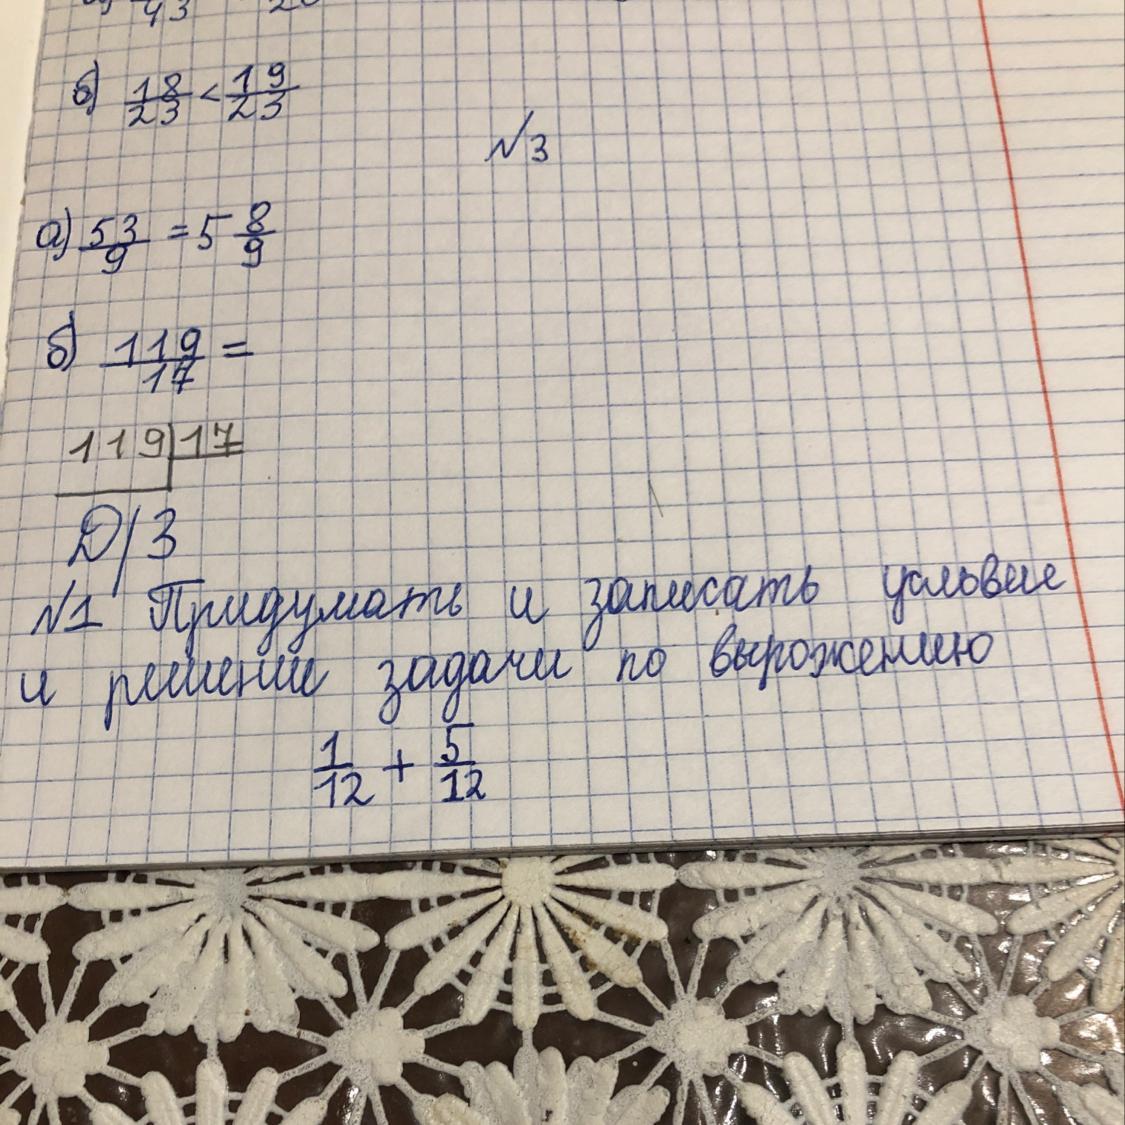 б) 18/23 < 19/23
№3
а) 53/9 = 5 8/9
б) 119/17 =
119 | 17
Д/З
№1 Придумать и записать условие
и решение задачи по выражению
1/12 + 5/12